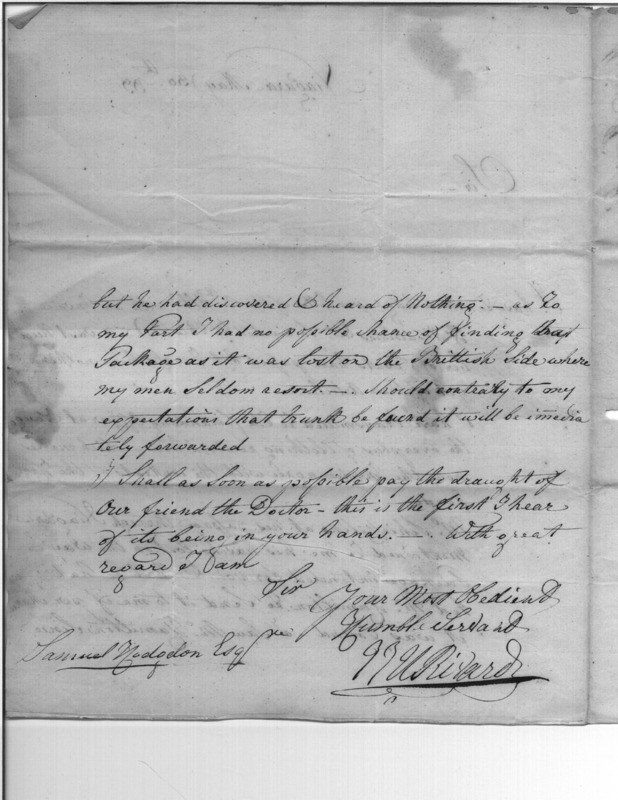 but he had discovered & heard of Nothing. — as to
my Part I had no possible chance of finding that
Package as it was lost on the Brittish Side where
my men Seldom resort. —. Should contrary to my
expectations that trunk be found it will be imedia
tely forwarded
I Shall as Soon as possible pay the draught of
Our friend the Doctor – this is the first I hear
of its being in your hands. —. With great
regard I am
Sir
Your Most Obedient
Humble Servant
Rivard
Samuel Hodgdon Esqre